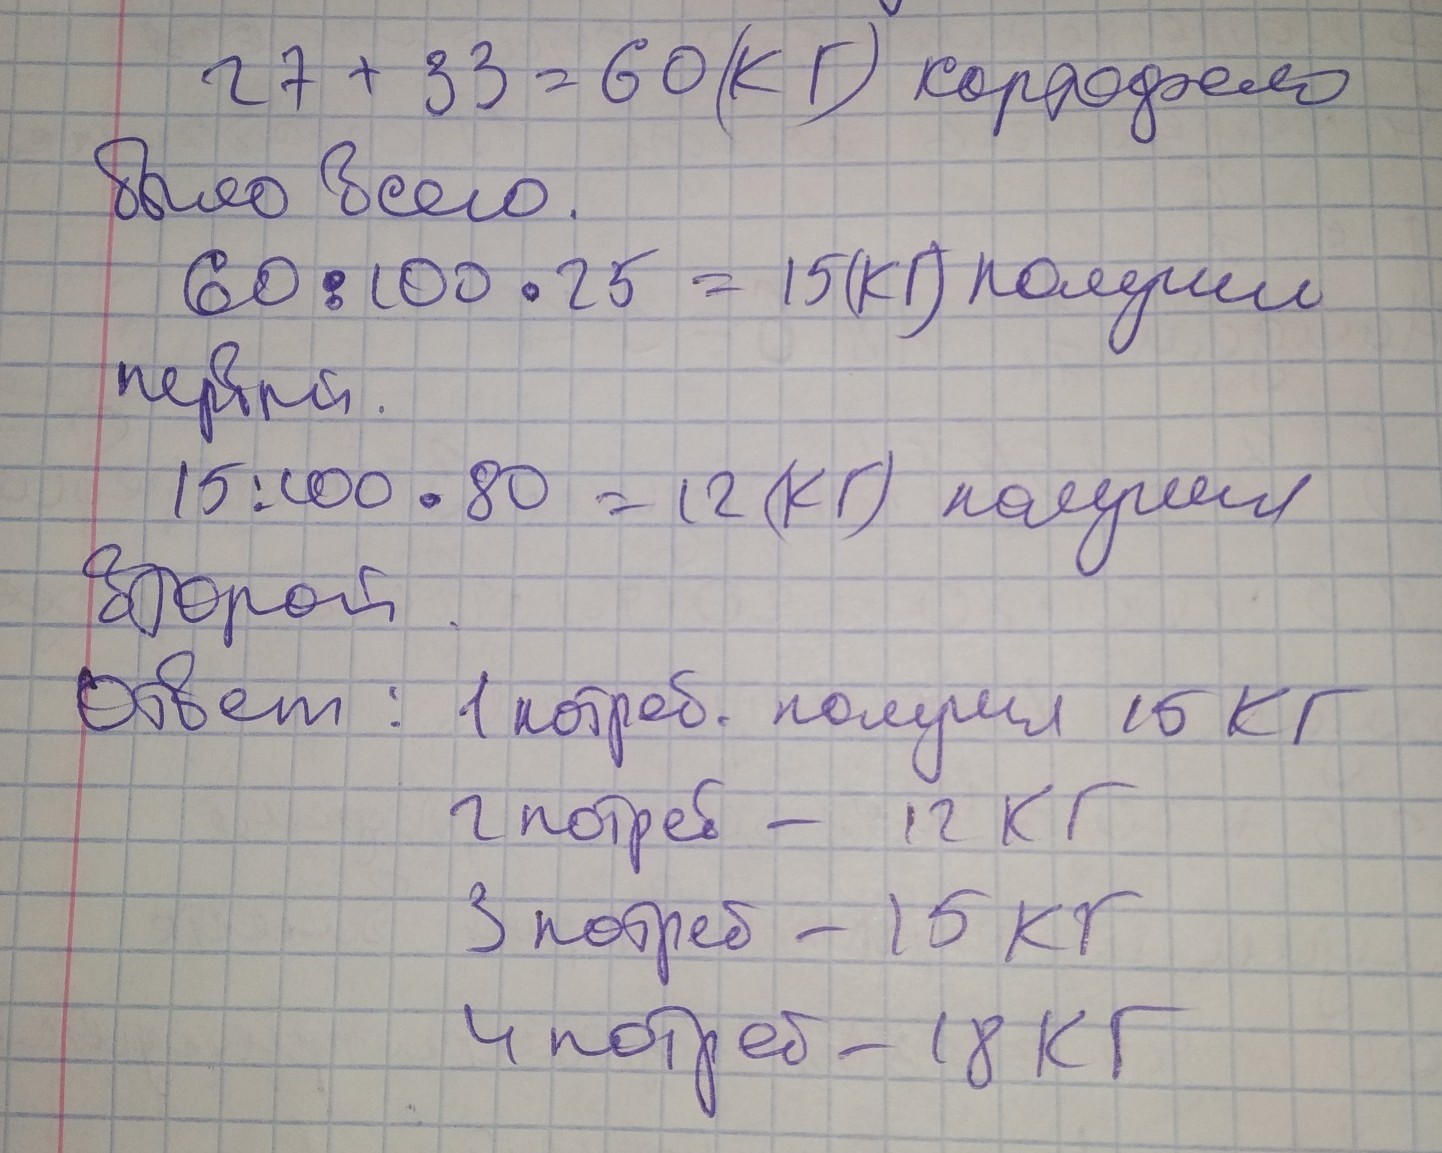 27 + 33 = 60 (КГ)
было всего.
60 : 100 • 25 = 15 (КГ) получил
первый.
15 : 100 • 80 = 12 (КГ) получил
второй.
Ответ : 1 потреб. получил 15 КГ
2 потреб – 12 КГ
3 потреб – 15 КГ
4 потреб – 18 КГ